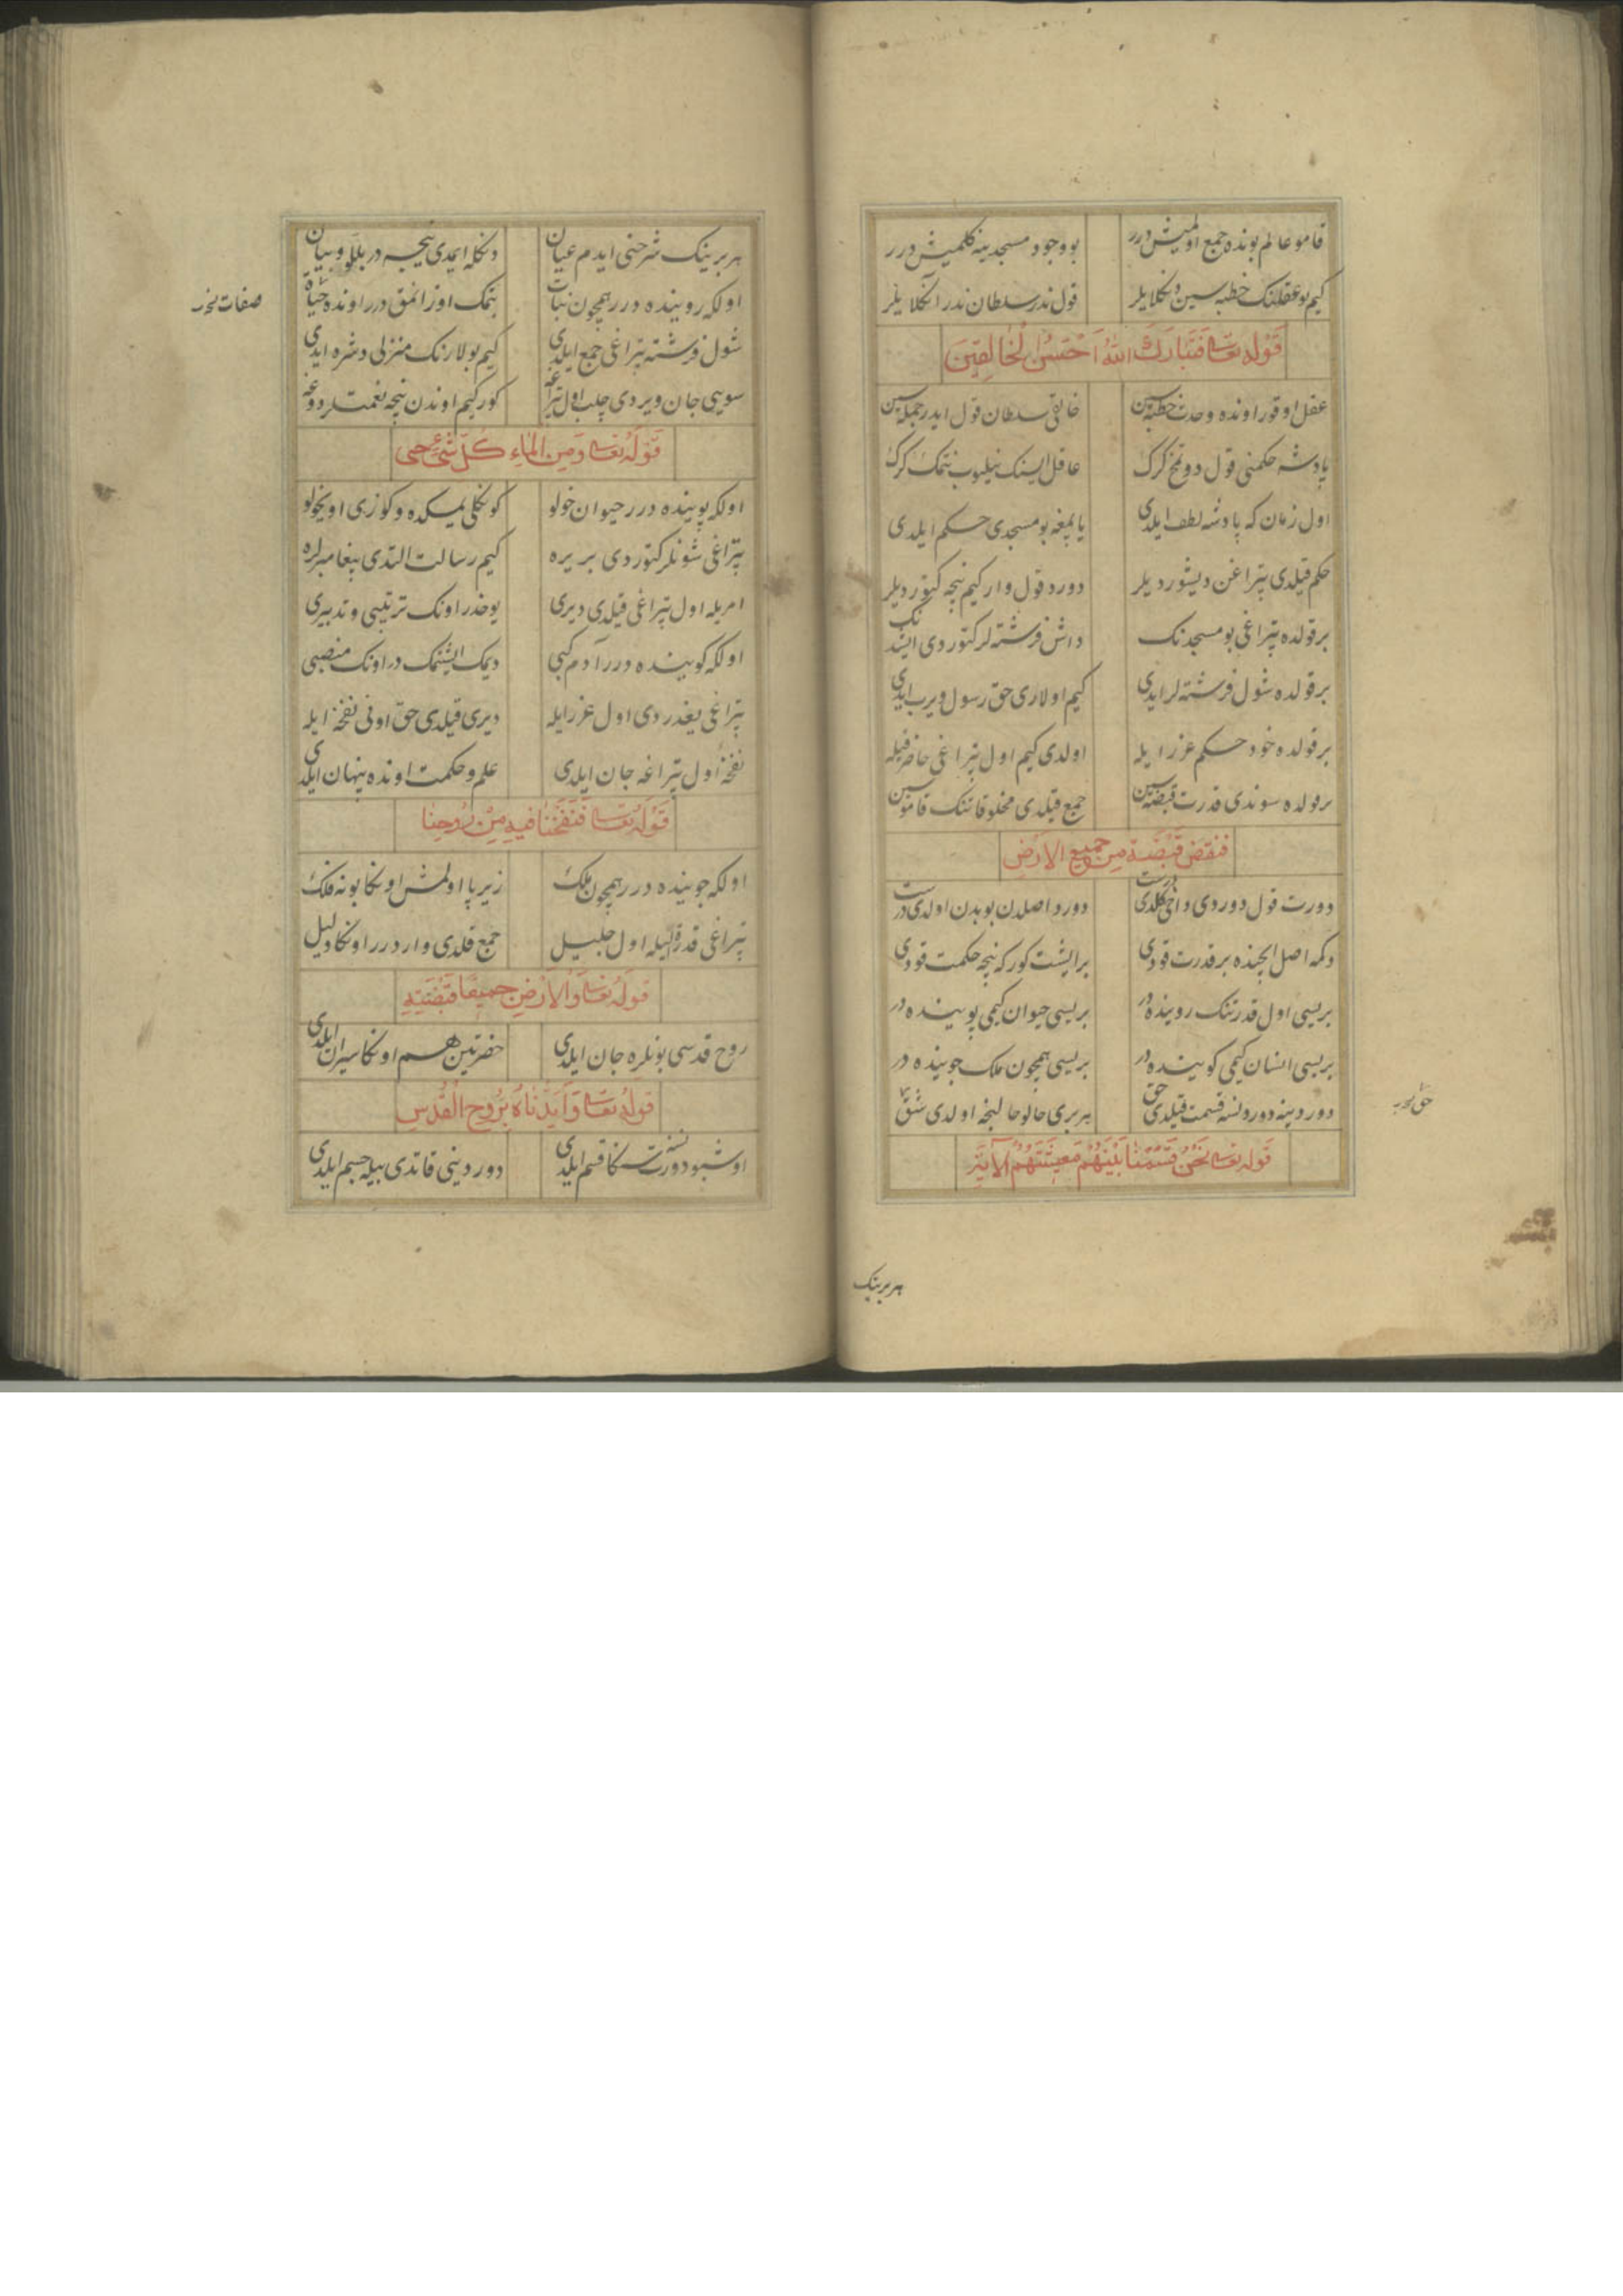 قامو عالم بونده جمع اولمیش درر بو وجود مسجدینه کلمیش درر
کیم بو عقلنک خطبه سین دکلایلر قول ندر سلطان ندر انکلایلر
قوله تعالی فتبارك الله احسن الخالقین
عقل اوقور اونده وحدت خطبه سین خالق سلطان قول ایدر جمله سین
پادشه حکمنی قول دوتمق کرک عاقل ایسنک نیلیوب نتمک کرک
اول زمان که پادشه لطف ایلدی یاپمغه بو مسجدی حکم ایلدی
حکم قیلدی تپراغن دیشوردیلر دورد قول وار کیم نیچه کتوردیلر
بر قولده تپراغی بو مسجدنک داش فرشته لر کتوردی ایشدنک
بر قولده شول فرشته لر ایدی کیم اولاری حق رسول ویرب ایدی
بر قولده خود حکم عزرایله اولدی کیم اول تپراغی حاضر قیله
بر قولده سوندی قدرت قبضه سین جمع قیلدی مخلوقاتنک قاموسین
فنقض قبضة من جمیع الارض
دورت قول دوردی داخی کلدی درست دورد اصلدن بو بدن اولدی درست
دکمه اصل ایچنده بر قدرت قودی بر ایشت کور که نیچه حکمت قودی
بریسی اول قدرتنک روینده در بریسی حیوان کیمی پوینده در
بریسی انسان کیمی کوینده در بریسی همچون ملک جوینده در
دوردینه دورد نسنه قسمت قیلدی حق هر بری حالو حالنجه اولدی شق
حق نحر
قوله تعالی نحن قسمنا بینهم معیشتهم الآیة
هر برینک
هر برینک شرحنی ایدم عیان دنکله ایمدی نیچه در بللو و بیان
اولکه روینده درر همچون نبات بتمک اوزانمق درر اونده حیاة
صفات نحر
شول فرشته تپراغی جمع ایلدی کیم بولارنک منزلی دشره ایدی
سویی جان ویردی چلب اول تپراغه کور کیم اوندن نیچه نعمتلر دوغه
قوله تعالی ومن الماء کل شیء حی
اولکه پوینده درر حیوان خولو کونکلی یمکده و کوزی اویخولو
تپراغی شونلر کتوردی بر یره کیم رسالت التدی پیغامبرلره
امریله اول تپراغی قیلدی دیری یوخدر اونک ترتیبی و تدبیری
اولکه کوینده درر آدم کبی دیمک ایشتمک در اونک منصبی
تپراغی یغدردی اول عزرایله دیری قیلدی حق اونی نفخه ایله
نفخه اول تپراغه جان ایلدی علم و حکمت اونده پنهان ایلدی
قوله تعالی فنفخنا فیه من روحنا
اولکه جوینده درر همچون ملک زیر پا اولمش اونکا بو نه فلک
تپراغی قدرة الیله اول جلیل جمع قلدی واردرر اونکا دلیل
قوله تعالی والارض جمیعا قبضته
روح قدسی بونلره جان ایلدی حضرتین هم اونکا سیران ایلدی
قوله تعالی وایدناه بروح القدس
اوشبو دورت نسنه سنکا قسم ایلدی دوردینی قاتدی بیله جسم ایلدی